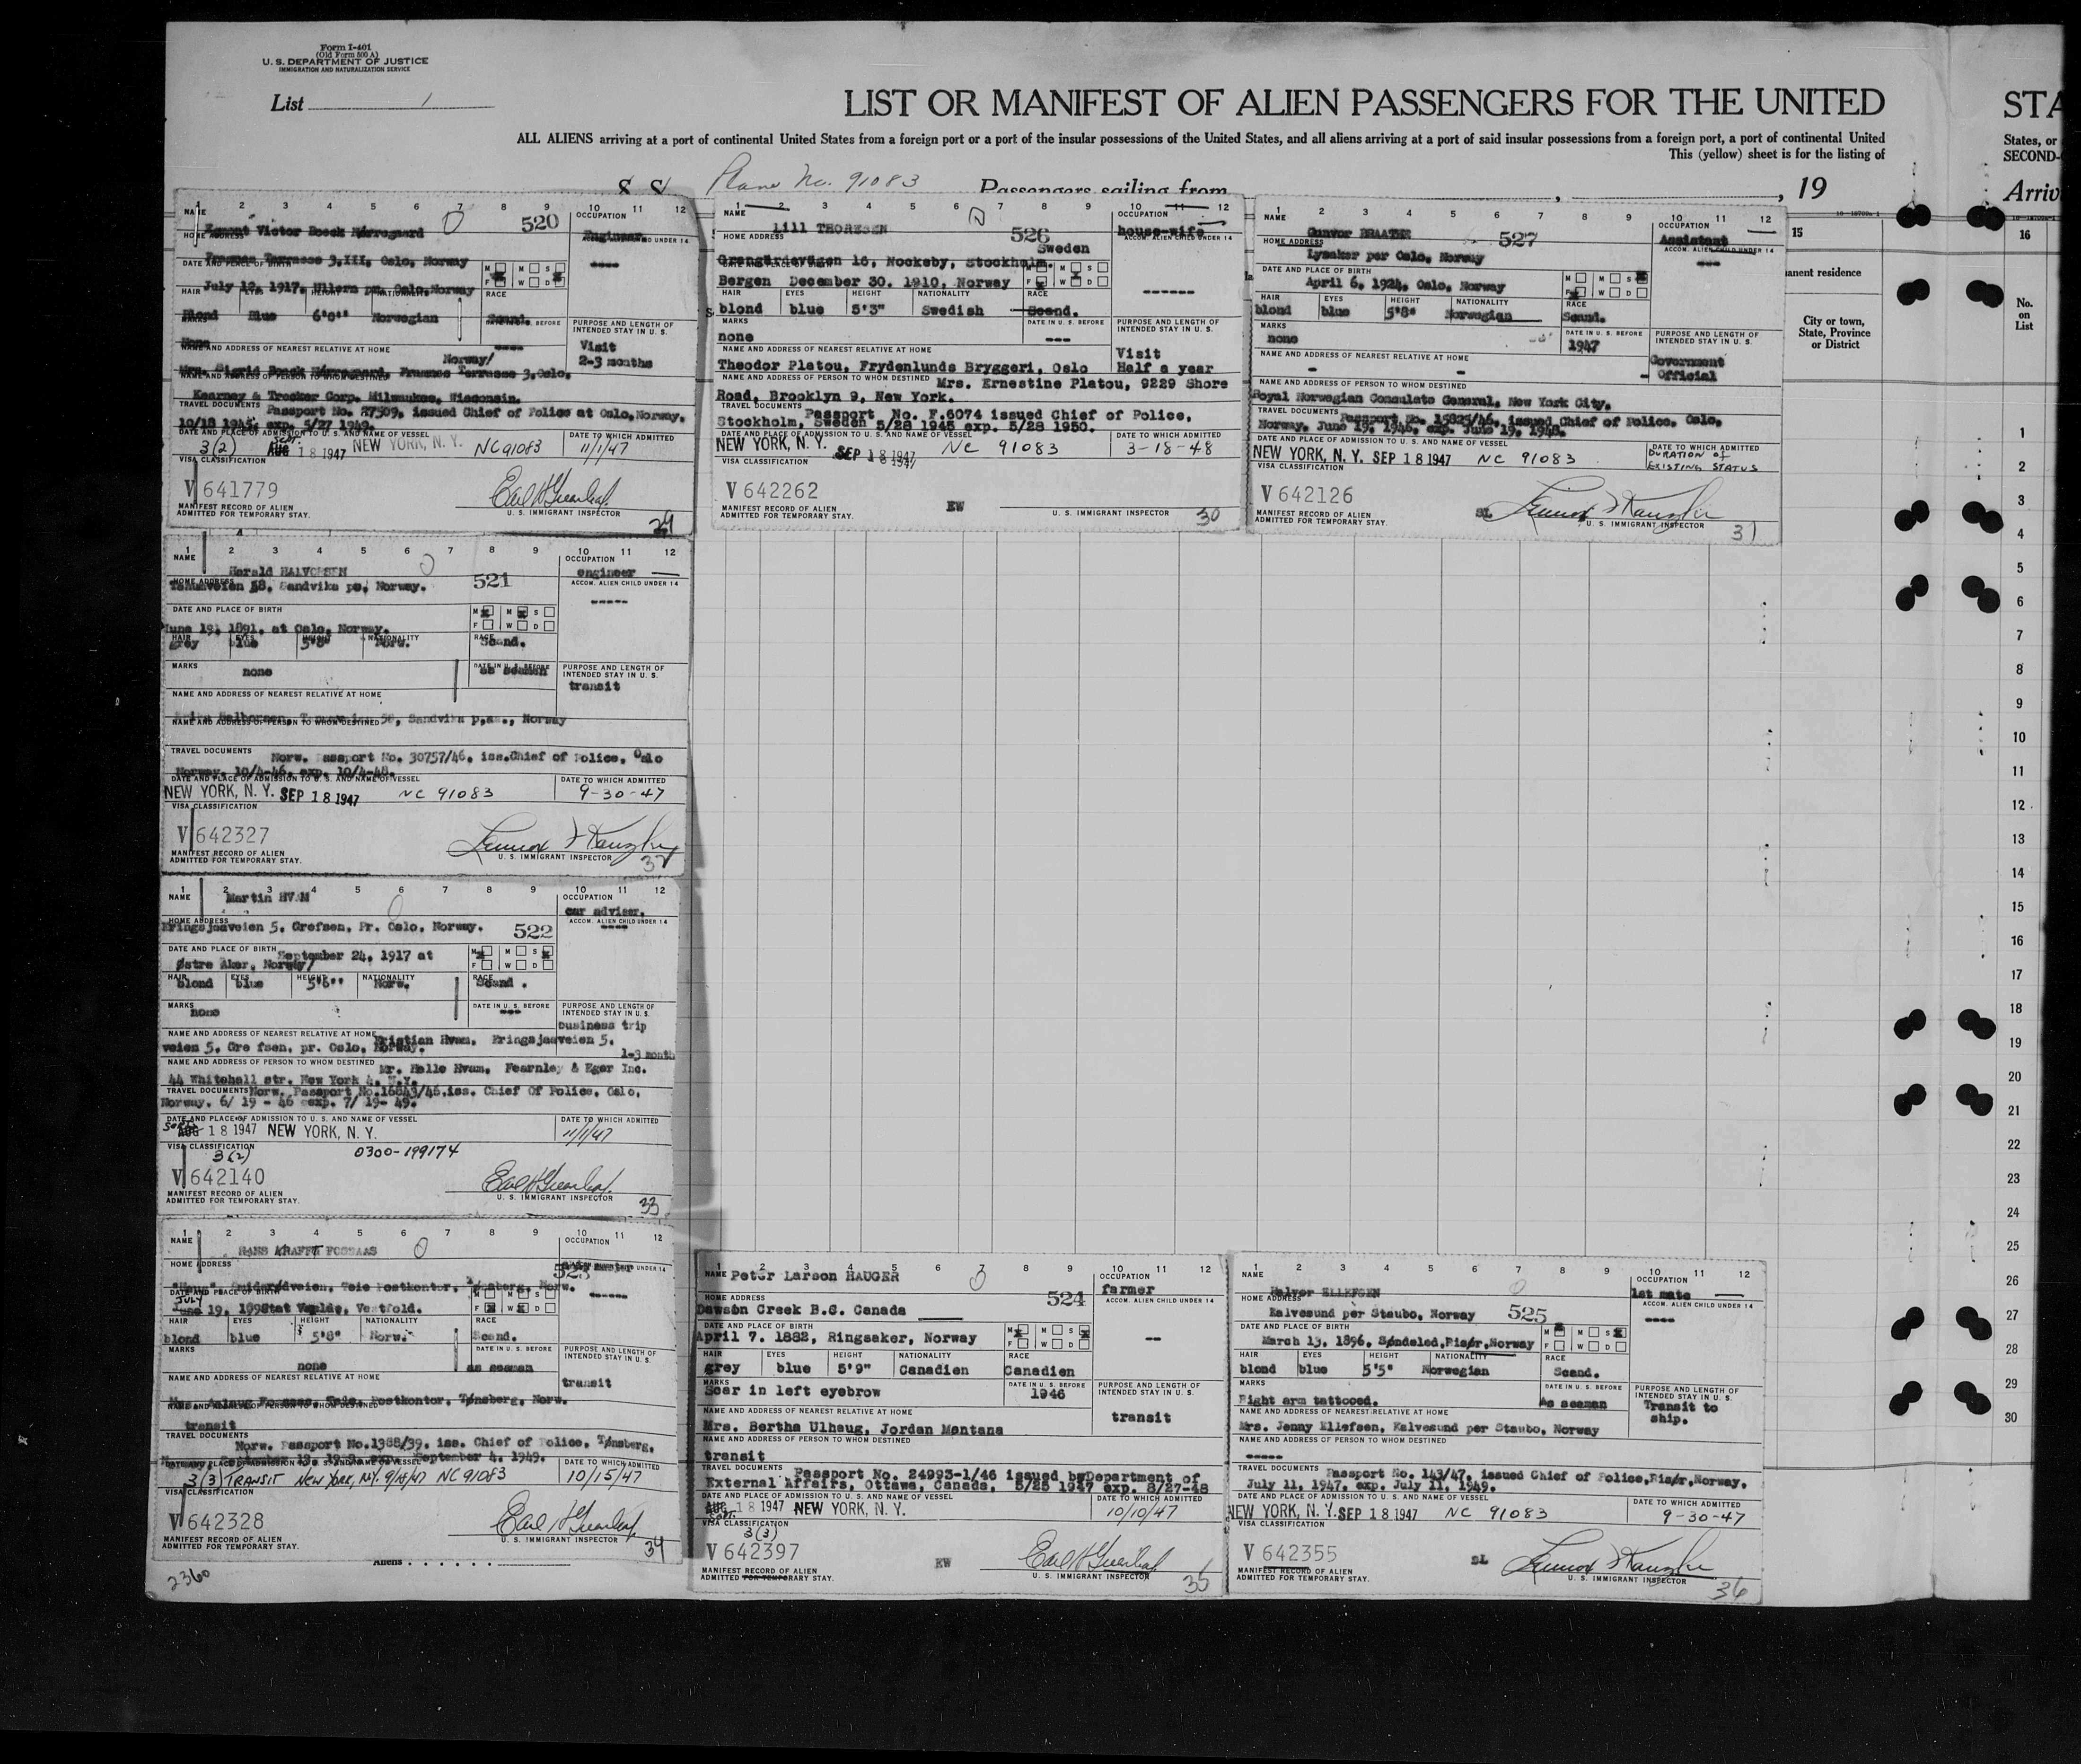 Form I-401
(Old Form 500 A)
U. S. DEPARTMENT OF JUSTICE
IMMIGRATION AND NATURALIZATION SERVICE
List 1
LIST OR MANIFEST OF ALIEN PASSENGERS FOR THE UNITED
STA
ALL ALIENS arriving at a port of continental United States from a foreign port or a port of the insular possessions of the United States, and all aliens arriving at a port of said insular possessions from a foreign port, a port of continental United
States, or
This (yellow) sheet is for the listing of
SECOND-
S. S. Plane No. 91083 Passengers sailing from , 19
Arriv
1 2 3 4 5 6 7 8 9 10 11 12
NAME Victor Boeck Nørregaard
520
OCCUPATION Engineer
HOME ADDRESS Terrasse 3,III, Oslo, Norway
DATE AND PLACE OF BIRTH July 12, 1917, Ullern pr. Oslo, Norway
HAIR EYES HEIGHT NATIONALITY RACE
Blond Blue 6'0" Norwegian Scand.
MARKS None
PURPOSE AND LENGTH OF INTENDED STAY IN U. S.
Visit
2-3 months
NAME AND ADDRESS OF NEAREST RELATIVE AT HOME Norway/
Mrs. Sigrid Boeck Nørregaard, Terrasse 3, Oslo,
NAME AND ADDRESS OF PERSON TO WHOM DESTINED
Kearney & Trecker Corp. Milwaukee, Wisconsin.
TRAVEL DOCUMENTS Passport No. 27309, issued Chief of Police at Oslo, Norway.
10/18 1945, exp. 5/27 1949.
DATE AND PLACE OF ADMISSION TO U. S. AND NAME OF VESSEL
DATE TO WHICH ADMITTED
3(2) Sept. AUG 18 1947 NEW YORK, N. Y. NC 91083 11/1/47
VISA CLASSIFICATION
V 641779
MANIFEST RECORD OF ALIEN
ADMITTED FOR TEMPORARY STAY.
U. S. IMMIGRANT INSPECTOR
29
1 2 3 4 5 6 7 8 9 10 11 12
NAME Lill THORESEN
526
OCCUPATION house-wife
HOME ADDRESS Sweden
16, Nockeby, Stockholm.
ACCOM. ALIEN CHILD UNDER 14
Bergen December 30. 1910. Norway
HAIR EYES HEIGHT NATIONALITY RACE
blond blue 5'3" Swedish Scand.
MARKS none
DATE IN U. S. BEFORE ---
PURPOSE AND LENGTH OF INTENDED STAY IN U. S.
Visit
Half a year
NAME AND ADDRESS OF NEAREST RELATIVE AT HOME
Theodor Platou, Frydenlunds Bryggeri, Oslo
NAME AND ADDRESS OF PERSON TO WHOM DESTINED Mrs. Ernestine Platou, 9229 Shore
Road, Brooklyn 9, New York.
TRAVEL DOCUMENTS Passport No. F.6074 issued Chief of Police,
Stockholm, Sweden 5/28 1945 exp. 5/28 1950.
DATE AND PLACE OF ADMISSION TO U. S. AND NAME OF VESSEL
DATE TO WHICH ADMITTED
NEW YORK, N. Y. SEP 18 1947 NC 91083 3-18-48
VISA CLASSIFICATION
V 642262
MANIFEST RECORD OF ALIEN
ADMITTED FOR TEMPORARY STAY.
EW
U. S. IMMIGRANT INSPECTOR
30
1 2 3 4 5 6 7 8 9 10 11 12
NAME Gunvor BRAATHE
527
OCCUPATION Assistant
HOME ADDRESS Lysaker per Oslo, Norway
ACCOM. ALIEN CHILD UNDER 14
DATE AND PLACE OF BIRTH
April 6, 1924, Oslo, Norway
HAIR EYES HEIGHT NATIONALITY RACE
blond blue 5'8" Norwegian Scand.
MARKS none
DATE IN U. S. BEFORE 1947
PURPOSE AND LENGTH OF INTENDED STAY IN U. S.
Government
Official
NAME AND ADDRESS OF NEAREST RELATIVE AT HOME
NAME AND ADDRESS OF PERSON TO WHOM DESTINED
Royal Norwegian Consulate General, New York City.
TRAVEL DOCUMENTS Passport No. 15825/46, issued Chief of Police, Oslo,
Norway, June 19, 1946, exp. June 19, 1948.
DATE AND PLACE OF ADMISSION TO U. S. AND NAME OF VESSEL
DATE TO WHICH ADMITTED
NEW YORK, N. Y. SEP 18 1947 NC 91083
DURATION OF
EXISTING STATUS
VISA CLASSIFICATION
V 642126
MANIFEST RECORD OF ALIEN
ADMITTED FOR TEMPORARY STAY.
SL
U. S. IMMIGRANT INSPECTOR
31
15
16
anent residence
City or town,
State, Province
or District
No.
on
List
1
2
3
4
5
6
7
8
9
10
11
12
13
14
15
16
17
18
19
20
21
22
23
24
25
26
27
28
29
30
1 2 3 4 5 6 7 8 9 10 11 12
NAME Harald HALVORSEN
521
OCCUPATION engineer
HOME ADDRESS 58, Sandvika pe, Norway.
ACCOM. ALIEN CHILD UNDER 14
DATE AND PLACE OF BIRTH
June 19, 1891, at Oslo, Norway.
HAIR EYES HEIGHT NATIONALITY RACE
grey blue 5'8" Norw. Scand.
MARKS none
DATE IN U. S. BEFORE as seaman
PURPOSE AND LENGTH OF INTENDED STAY IN U. S.
transit
NAME AND ADDRESS OF NEAREST RELATIVE AT HOME
58, Sandvika Norway
NAME AND ADDRESS OF PERSON TO WHOM DESTINED
TRAVEL DOCUMENTS
Norw. Passport No. 30757/46, iss.Chief of Police, Oslo
Norway, 10/4-46, exp. 10/4-48.
DATE AND PLACE OF ADMISSION TO U. S. AND NAME OF VESSEL
DATE TO WHICH ADMITTED
NEW YORK, N. Y. SEP 18 1947 NC 91083 9-30-47
VISA CLASSIFICATION
V 642327
MANIFEST RECORD OF ALIEN
ADMITTED FOR TEMPORARY STAY.
U. S. IMMIGRANT INSPECTOR
32
1 2 3 4 5 6 7 8 9 10 11 12
NAME Martin HVAM
522
OCCUPATION car adviser.
HOME ADDRESS
Kringsjaaveien 5, Grefsen, Pr. Oslo, Norway.
ACCOM. ALIEN CHILD UNDER 14
DATE AND PLACE OF BIRTH September 24, 1917 at
Østre Aker, Norway/
HAIR EYES HEIGHT NATIONALITY RACE
blond blue 5'6" Norw. Scand.
MARKS none
DATE IN U. S. BEFORE ---
PURPOSE AND LENGTH OF INTENDED STAY IN U. S.
business trip
1-3 month
NAME AND ADDRESS OF NEAREST RELATIVE AT HOME Kristian Hvam, Kringsjaaveien 5.
veien 5, Gre fsen, pr. Oslo, Norway.
NAME AND ADDRESS OF PERSON TO WHOM DESTINED Mr. Helle Hvam, Fearnley & Eger Inc.
44 Whitehall str. New York 4. N.Y.
TRAVEL DOCUMENTS Norw. Passport No.16843/46,iss. Chief Of Police, Oslo,
Norway. 6/ 19 - 46 exp. 7/ 19- 49.
DATE AND PLACE OF ADMISSION TO U. S. AND NAME OF VESSEL
DATE TO WHICH ADMITTED
Sept. AUG 18 1947 NEW YORK, N. Y. 11/1/47
VISA CLASSIFICATION
3(2) 0300-199174
V 642140
MANIFEST RECORD OF ALIEN
ADMITTED FOR TEMPORARY STAY.
U. S. IMMIGRANT INSPECTOR
33
1 2 3 4 5 6 7 8 9 10 11 12
NAME HANS KRAFFT FOSSAAS
523
OCCUPATION master
HOME ADDRESS
Teie Postkontor, Tønsberg, Norw.
DATE AND PLACE OF BIRTH
JULY June 19, Vestfold.
HAIR EYES HEIGHT NATIONALITY RACE
blond blue 5'8" Norw. Scand.
MARKS none
DATE IN U. S. BEFORE as seaman
PURPOSE AND LENGTH OF INTENDED STAY IN U. S.
transit
NAME AND ADDRESS OF NEAREST RELATIVE AT HOME
Postkontor, Tønsberg, Norw.
NAME AND ADDRESS OF PERSON TO WHOM DESTINED
transit
TRAVEL DOCUMENTS
Norw. Passport No.1388/39. iss. Chief of Police, Tønsberg,
September 4. 1949.
DATE TO WHICH ADMITTED
3(3) TRANSIT NEW YORK, N.Y. 9/18/47 NC 91083 10/15/47
VISA CLASSIFICATION
V 642328
MANIFEST RECORD OF ALIEN
ADMITTED FOR TEMPORARY STAY.
U. S. IMMIGRANT INSPECTOR
34
1 2 3 4 5 6 7 8 9 10 11 12
NAME Peter Larson HAUGER
524
OCCUPATION farmer
HOME ADDRESS
Dawson Creek B.C. Canada
ACCOM. ALIEN CHILD UNDER 14
DATE AND PLACE OF BIRTH
April 7. 1882, Ringsaker, Norway
HAIR EYES HEIGHT NATIONALITY RACE
grey blue 5'9" Canadien Canadien
MARKS
Scar in left eyebrow
DATE IN U. S. BEFORE 1946
PURPOSE AND LENGTH OF INTENDED STAY IN U. S.
transit
NAME AND ADDRESS OF NEAREST RELATIVE AT HOME
Mrs. Bertha Ulhaug, Jordan Montana
NAME AND ADDRESS OF PERSON TO WHOM DESTINED
transit
TRAVEL DOCUMENTS Passport No. 24993-1/46 issued by Department of
External Affairs, Ottawa, Canada, 5/25 1947 exp. 8/27-48
DATE AND PLACE OF ADMISSION TO U. S. AND NAME OF VESSEL
DATE TO WHICH ADMITTED
AUG 18 1947 NEW YORK, N. Y. 10/10/47
Sept.
VISA CLASSIFICATION
3(3)
V 642397
MANIFEST RECORD OF ALIEN
ADMITTED FOR TEMPORARY STAY.
EW
U. S. IMMIGRANT INSPECTOR
35
1 2 3 4 5 6 7 8 9 10 11 12
NAME Halvor ELLEFSEN
525
OCCUPATION 1st mate
HOME ADDRESS
Kalvesund per Staubo, Norway
ACCOM. ALIEN CHILD UNDER 14
DATE AND PLACE OF BIRTH
March 13, 1896, Søndeled,Risør,Norway
HAIR EYES HEIGHT NATIONALITY RACE
blond blue 5'5" Norwegian Scand.
MARKS
Right arm tattooed.
DATE IN U. S. BEFORE As seaman
PURPOSE AND LENGTH OF INTENDED STAY IN U. S.
Transit to
ship.
NAME AND ADDRESS OF NEAREST RELATIVE AT HOME
Mrs. Jenny Ellefsen, Kalvesund per Staubo, Norway
NAME AND ADDRESS OF PERSON TO WHOM DESTINED
TRAVEL DOCUMENTS Passport No. 143/47, issued Chief of Police,Risør,Norway,
July 11, 1947, exp. July 11, 1949.
DATE AND PLACE OF ADMISSION TO U. S. AND NAME OF VESSEL
DATE TO WHICH ADMITTED
NEW YORK, N. Y. SEP 18 1947 NC 91083 9-30-47
VISA CLASSIFICATION
V 642355
MANIFEST RECORD OF ALIEN
ADMITTED FOR TEMPORARY STAY.
SL
U. S. IMMIGRANT INSPECTOR
36
Aliens
2360